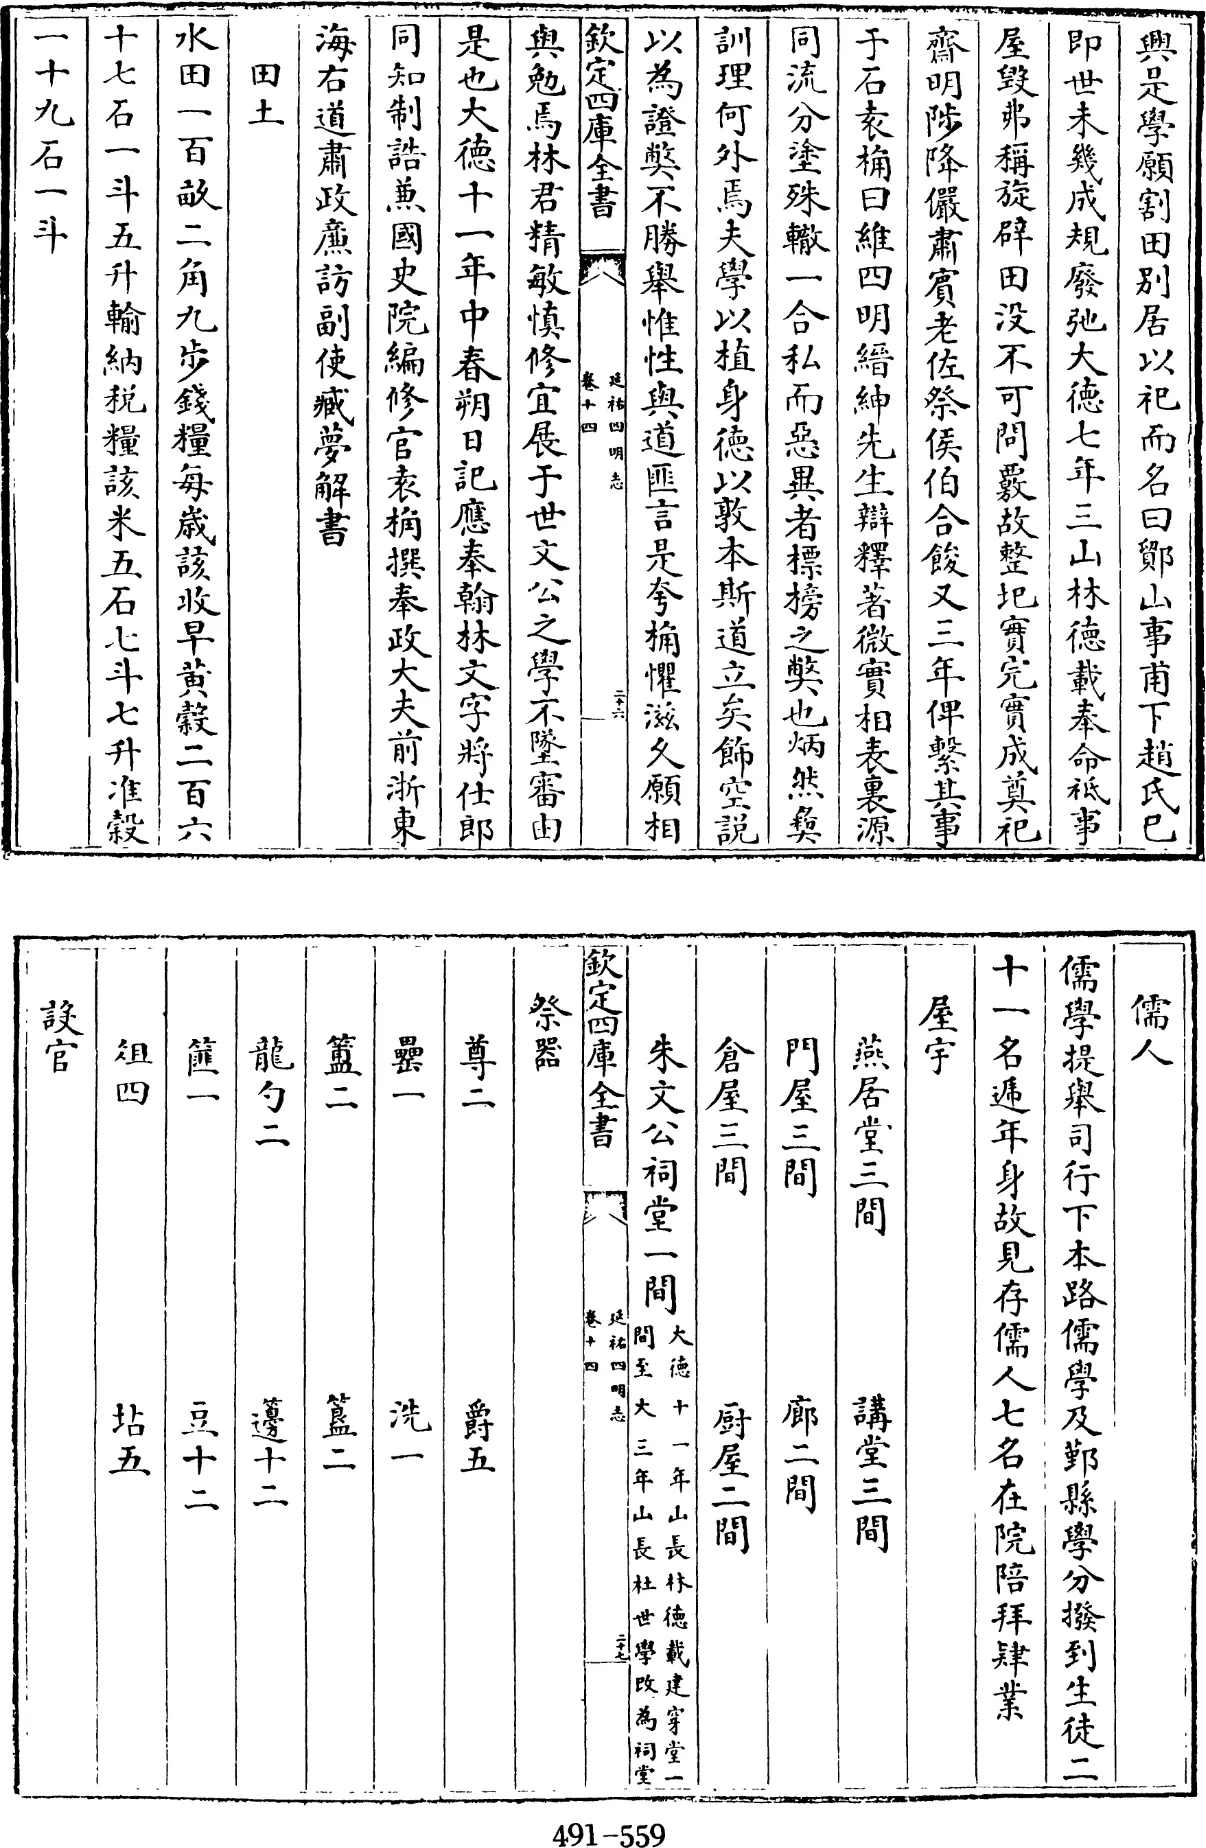 興是學願割田别居以祀而名曰鄮山事甫下趙氏已
即世未幾成規廢弛大德七年三山林德載奉命祗事
屋毀弗稱旋辟田没不可問覈故整圯實完實成奠祀
齋明陟降儼肅賓老佐祭侯伯合餕又三年俾繫其事
于石袁桷曰維四明縉紳先生辯釋著微實相表裏源
同流分塗殊轍一合私而惡異者標榜之獘也炳然彛
訓理何外焉夫學以植身德以敦本斯道立矣飾空説
以為證獘不勝舉惟性與道匪言是夸桷懼滋久願相
欽定四庫全書
延祐四明志
卷十四
二十六
與勉焉林君精敏慎修宜展于世文公之學不墜審由
是也大德十一年中春朔日記應奉翰林文字將仕郎
同知制誥兼國史院編修官袁桷撰奉政大夫前浙東
海右道肅政廉訪副使臧夢解書
田土
水田一百畝二角九步錢糧每歲該收早黄穀二百六
十七石一斗五升輸納税糧該米五石七斗七升准穀
一十九石一斗
儒人
儒學提舉司行下本路儒學及鄞縣學分撥到生徒二
十一名遞年身故見存儒人七名在院陪拜肄業
屋宇
燕居堂三間　講堂三間
門屋三間　廊二間
倉屋三間　厨屋二間
朱文公祠堂一間
大德十一年山長林德載建穿堂一
間至大三年山長杜世學改為祠堂
欽定四庫全書
延祐四明志
卷十四
二十七
祭器
尊二　爵五
罍一　洗一
簠二　簋二
龍勺二　籩十二
篚一　豆十二
俎四　坫五
設官
491-559